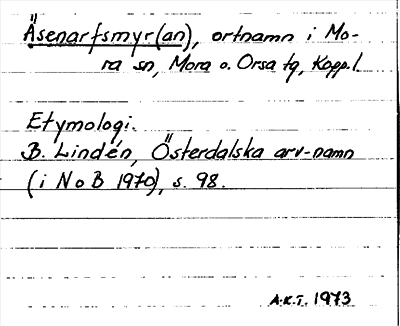 Äsenarfsmyr(an), ortnamn i Mo-
ra sn, Mora o. Orsa tg, Kopp.l.
Etymologi.
B. Lindén, Österdalska arv-namn
(i NoB 1970), s. 98.
A.K.T. 1973